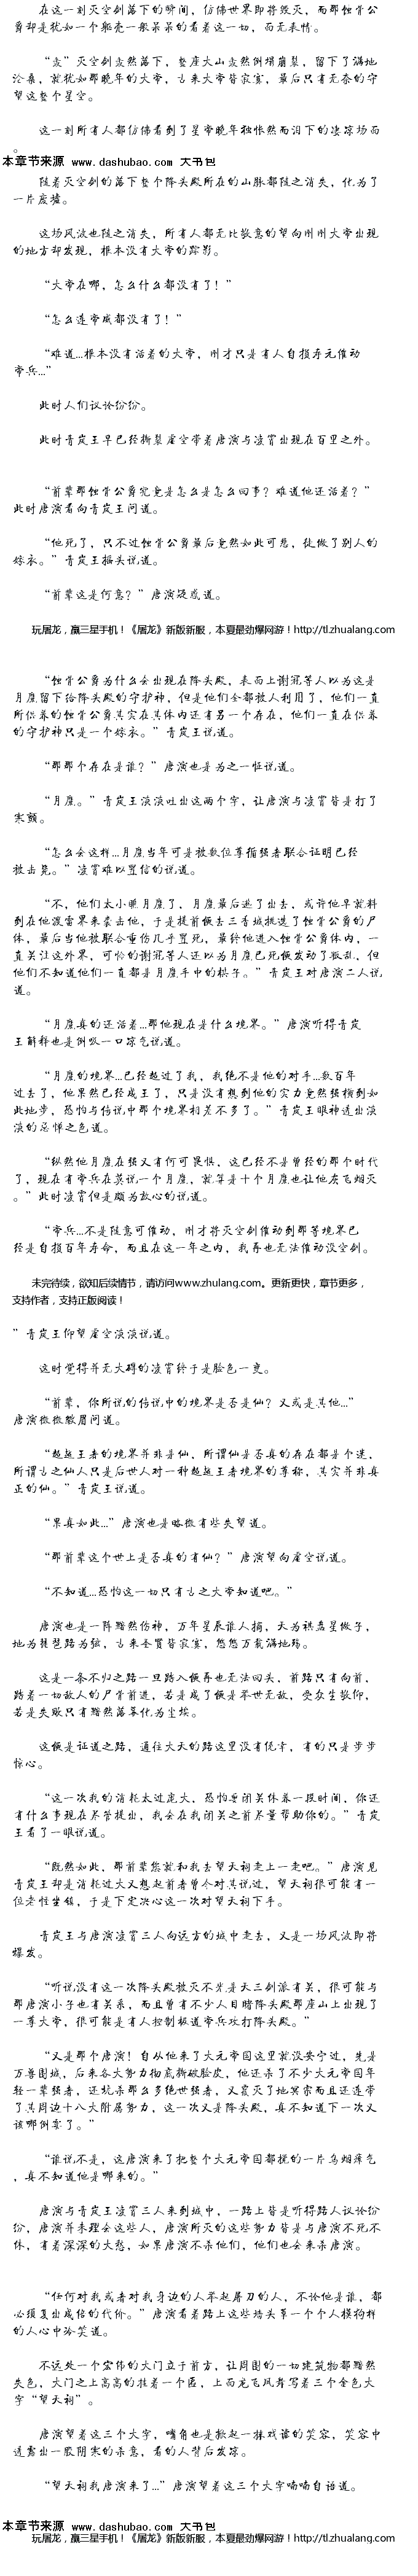 在这一刻灭空剑落下的瞬间，仿佛世界即将毁灭，而那蚀骨公
爵却是犹如一个躯壳一般呆呆的看着这一切，面无表情。
“轰”灭空剑轰然落下，整座大山轰然倒塌崩裂，留下了满地
沧桑，就犹如那晚年的大帝，古来大帝皆寂寞，最后只有无奈的守
望这整个星空。
这一刻所有人都仿佛看到了星帝晚年独怅然而泪下的凄凉场面
。
本章节来源 www.dashubao.com 大书包
随着灭空剑的落下整个降头殿所在的山脉都随之消失，化为了
一片废墟。
这场风波也随之消失，所有人都无比敬意的望向刚刚大帝出现
的地方却发现，根本没有大帝的踪影。
“大帝在哪，怎么什么都没有了！”
“怎么连帝威都没有了！”
“难道...根本没有活着的大帝，刚才只是有人自损寿元催动
帝兵...”
此时人们议论纷纷。
此时青炭王早已经撕裂虚空带着唐演与凌霄出现在百里之外。
“前辈那蚀骨公爵究竟是怎么是怎么回事？难道他还活着？”
此时唐演看向青炭王问道。
“他死了，只不过蚀骨公爵最后竟然如此可悲，徒做了别人的
嫁衣。”青炭王摇头说道。
“前辈这是何意？”唐演疑惑道。
玩屠龙，赢三星手机！《屠龙》新版新服，本夏最劲爆网游！http://tl.zhualang.com
“蚀骨公爵为什么会出现在降头殿，表面上谢冠等人以为这是
月魔留下给降头殿的守护神，但是他们全都被人利用了，他们一直
所供养的蚀骨公爵其实在其体内还有另一个存在，他们一直在供养
的守护神只是一个嫁衣。”青炭王说道。
“那那个存在是谁？”唐演也是为之一怔说道。
“月魔。”青炭王淡淡吐出这两个字，让唐演与凌霄皆是打了
寒颤。
“怎么会这样...月魔当年可是被数位尊指强者联合证明已经
被击毙。”凌霄难以置信的说道。
“不，他们太小瞧月魔了，月魔最后逃了出去，或许他早就料
到在他渡雷界来袭击他，于是提前便去三香城挑选了蚀骨公爵的尸
体，最后当他被联合重伤几乎置死，最终他进入蚀骨公爵体内，一
直关注这外界，可怜的谢冠等人还以为月魔已死便发动了叛乱，但
他们不知道他们一直都是月魔手中的棋子。”青炭王对唐演二人说
道。
“月魔真的还活着...那他现在是什么境界。”唐演听得青炭
王解释也是倒吸一口凉气说道。
“月魔的境界...已经超过了我，我绝不是他的对手...数百年
过去了，他果然已经成王了，只是没有想到他的实力竟然强横到如
此地步，恐怕与传说中那个境界相差不多了。”青炭王眼神透出淡
淡的忌惮之色道。
“纵然他月魔在强又有何可畏惧，这已经不是曾经的那个时代
了，现在有帝兵在莫说一个月魔，就算是十个月魔也让他灰飞烟灭
。”此时凌霄但是颇为放心的说道。
“帝兵...不是随意可催动，刚才将灭空剑催动到那等境界已
经是自损百年寿命，而且在这一年之内，我再也无法催动没空剑。
未完待续，欲知后续情节，请访问www.zhulang.com。更新更快，章节更多，
支持作者，支持正版阅读！
”青炭王仰望虚空淡淡说道。
这时觉得并无大碍的凌霄终于是脸色一变。
“前辈，你所说的传说中的境界是否是仙？又或是其他...”
唐演微微皱眉问道。
“超越王者的境界并非是仙，所谓仙是否真的存在都是个迷，
所谓古之仙人只是后世人对一种超越王者境界的尊称，其实并非真
正的仙。”青炭王说道。
“果真如此...”唐演也是略微有些失望道。
“那前辈这个世上是否真的有仙？”唐演望向虚空说道。
“不知道...恐怕这一切只有古之大帝知道吧。”
唐演也是一阵黯然伤神，万年星辰谁人摘，天为棋盘星做子，
地为琵琶路为弦，古来圣贤皆寂寞，悠悠万载满地殇。
这是一条不归之路一旦踏入便再也无法回头，前路只有向前，
踏着一切敌人的尸骨前进，若是成了便是举世无敌，受众生敬仰，
若是失败只有黯然落幕化为尘埃。
这便是证道之路，通往大天的路这里没有侥幸，有的只是步步
惊心。
“这一次我的消耗太过庞大，恐怕要闭关休养一段时间，你还
有什么事现在尽管提出，我会在我闭关之前尽量帮助你的。”青炭
王看了一眼说道。
“既然如此，那前辈您就和我去望天祠走上一走吧。”唐演见
青炭王却是消耗过大又想起前者曾今对其说过，望天祠很可能有一
位老怪坐镇，于是下定决心这一次对望天祠下手。
青炭王与唐演凌霄三人向远方的城中走去，又是一场风波即将
爆发。
“听说没有这一次降头殿被灭不光是天三剑派有关，很可能与
那唐演小子也有关系，而且曾有不少人目睹降头殿那座山上出现了
一尊大帝，很可能是有人控制极道帝兵攻打降头殿。”
“又是那个唐演！自从他来了大元帝国这里就没安宁过，先是
万兽围城，后来各大势力彻底撕破脸皮，他还杀了不少大元帝国年
轻一辈强者，还坑杀那么多绝世强者，又震灭了地冥宗而且还连带
了其周边十八大附属势力，这一次又是降头殿，真不知道下一次又
该哪倒霉了。”
“谁说不是，这唐演来了把整个大元帝国都搅的一片乌烟瘴气
，真不知道他是哪来的。”
唐演与青炭王凌霄三人来到城中，一路上皆是听得路人议论纷
纷，唐演并未理会这些人，唐演所灭的这些势力皆是与唐演不死不
休，有着深深的大愁，如果唐演不杀他们，他们也会来杀唐演。
“任何对我或者对我身边的人举起屠刀的人，不论他是谁，都
必须复出成倍的代价。”唐演看着路上这些墙头草一个个人模狗样
的人心中冷笑道。
不远处一个宏伟的大门立于前方，让周围的一切建筑物都黯然
失色，大门之上高高的挂着一个匾，上面龙飞凤舞写着三个金色大
字“望天祠”。
唐演望着这三个大字，嘴角也是掀起一抹戏谑的笑容，笑容中
透露出一股阴寒的杀意，看的人背后发凉。
“望天祠我唐演来了...”唐演望着这三个大字喃喃自语道。
本章节来源 www.dashubao.com 大书包
玩屠龙，赢三星手机！《屠龙》新版新服，本夏最劲爆网游！http://tl.zhualang.com